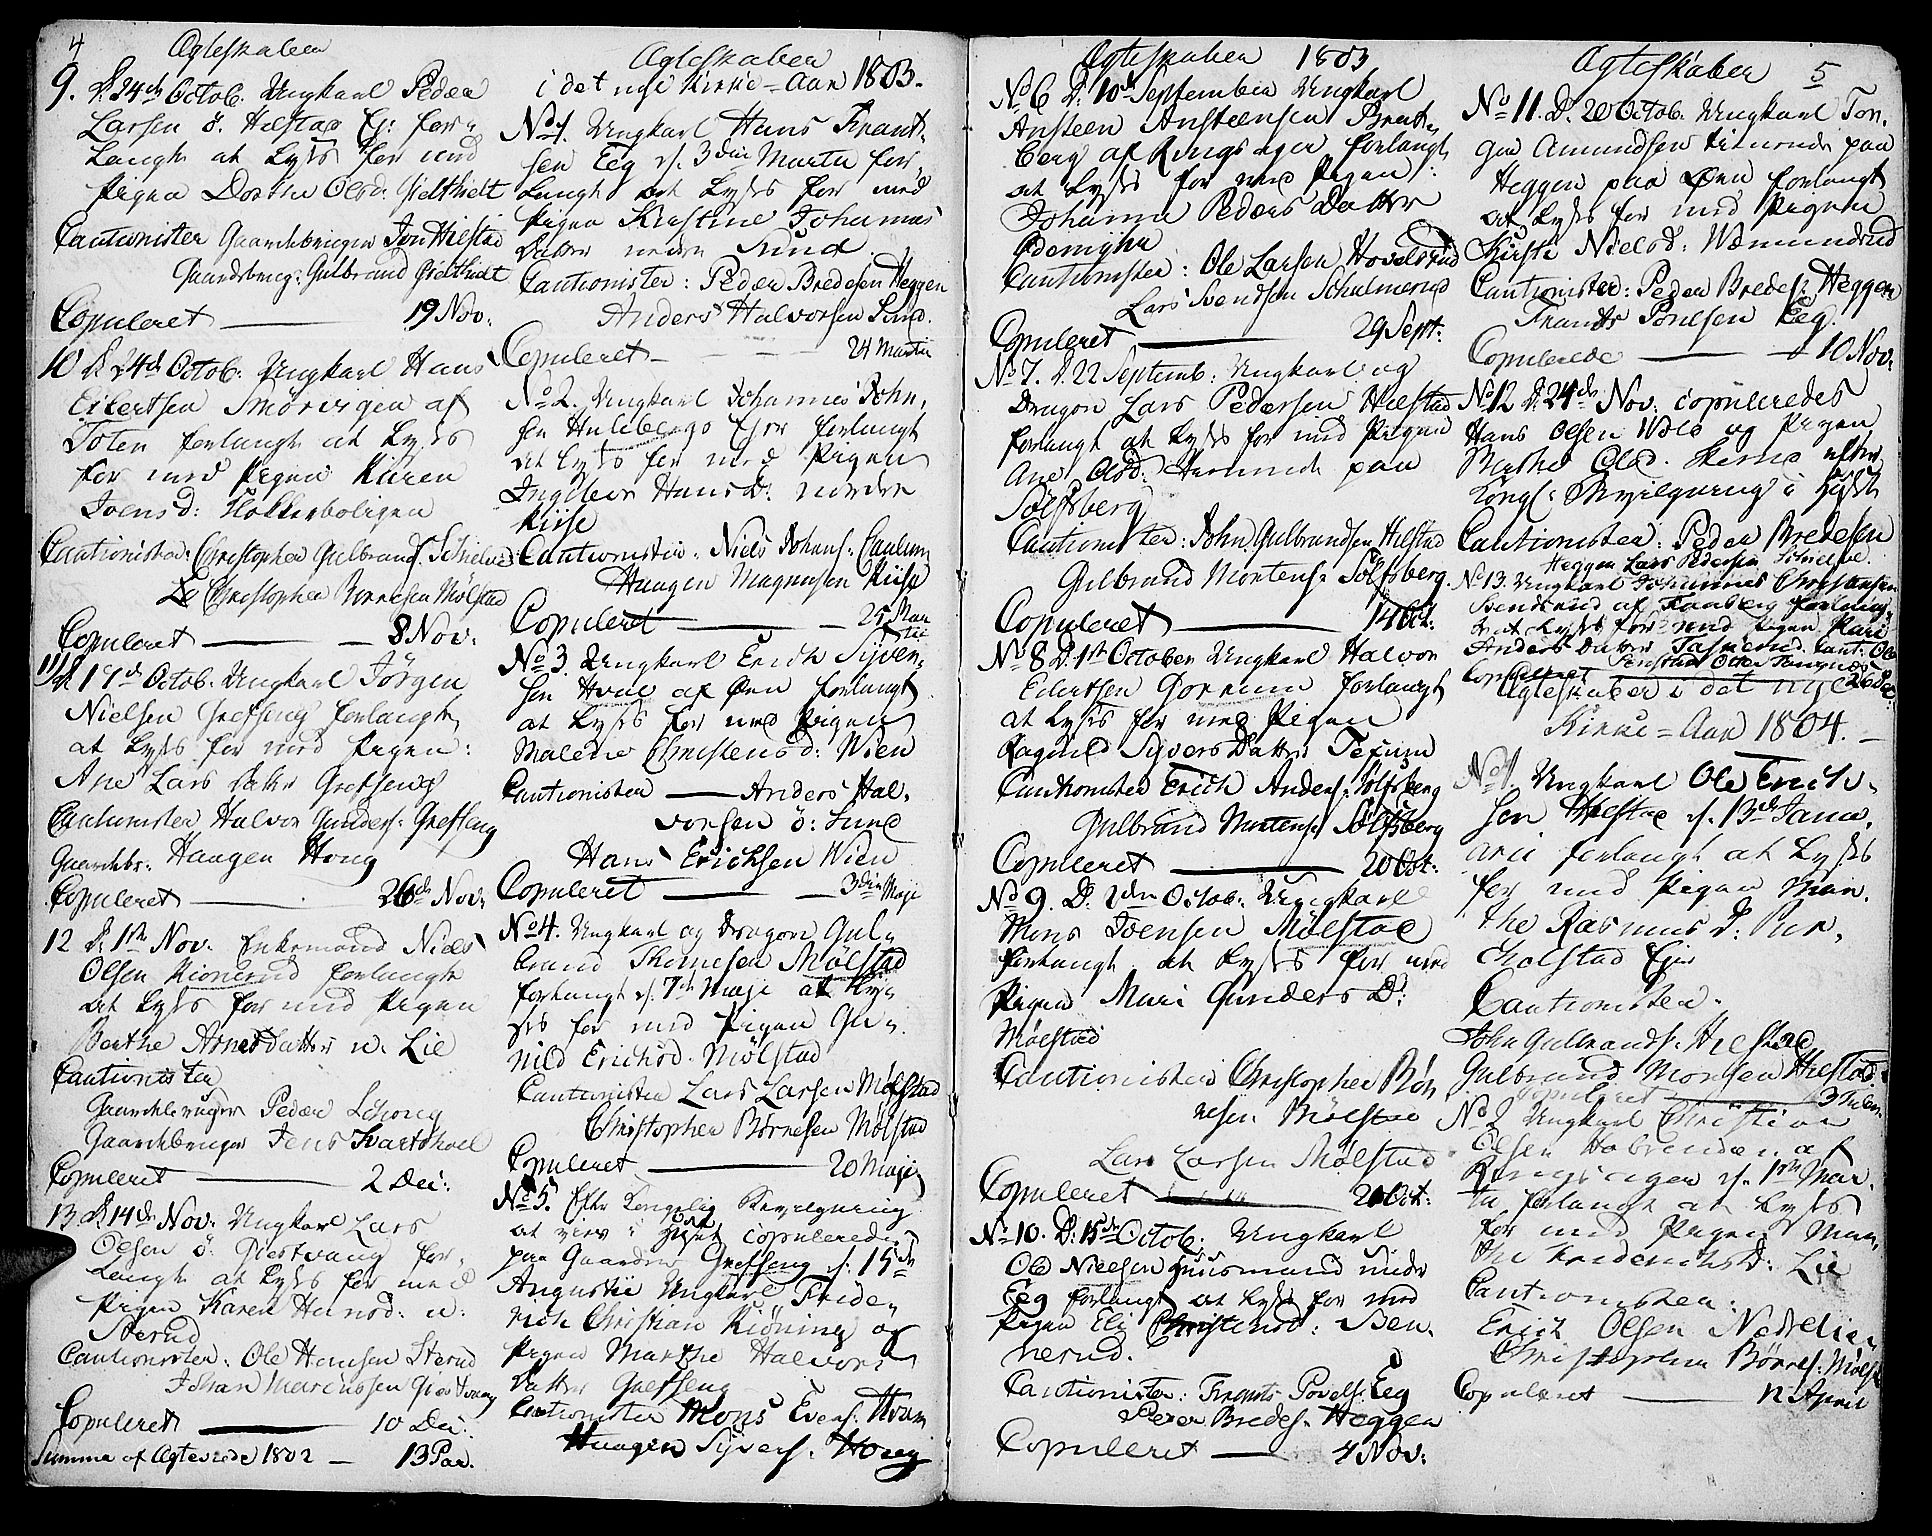 4
Ægteskaben
9. D. 24de Octob. Ungkarl Peder
Larsen ö. Hilstad Ej: for-
langte at Lyses for med
Pigen Dorthe Olsd: Gielthiet
Cautionister Gaardebruger Jon Hilstad
Gaardebrug: Gulbrand Gielthiet
Copuleret — 19 Nov:
10 D. 24de Octob: Ungkarl Hans
Eilertsen Smörvigen af
Toten forlangte at Lyses
for med Pigen Karen
Joensd: Klokkerboligen
Cautionister: Christopher Gulbrands. Schielve
Christopher Børresen Mølstad
Copuleret — 8 Nov:
11 D. 17de Octob: Ungkarl Jörgen
Nielsen Grefseng forlangte
at Lyses for med Pigen:
Ane Lars Datter Grefseng
Cautionister Halvor Gunders: Grefseng
Gaardebr: Haagen Houg
Copuleret — 26de Nov:
12 D. 1ste Nov. Enkemand Niels
Olsen Kionerud forlangte
at Lyses for med Pigen
Berthe Arnesdatter n. Lie
Cautionister
Gaardebruger Peder Schoug
Gaardebruger Jens Svartshoel
Copuleret — 2 Dec:
13 D. 14de Nov. Ungkarl Lars
Olsen ö. Giestvang for-
langte at Lyses for med
Pigen Karen Hansd: n:
Sterud
Cautionister: Ole Hansen Sterud
Johan Marcussen Giestvang
Copuleret — 10 Dec:
Summa af Ægteviede 1802 — 13 Par.
Ægteskaben
i det nye Kirke-Aar 1803.
No 1. Ungkarl Hans Frant-
sen Eeg d. 3die Martii for-
langte at Lyses for med
Pigen Kirstine Johannes
Datter nedre Sund
Cautionister: Peder Bredesen Heggen
Anders Halvorsen Sund.
Copuleret — 24 Martii
No 2. Ungkarl Johannes John-
sen Huleberg Ejer forlangt
at Lyses for med Pigen
Ingebor Hans D: nordre
Kiise
Cautionister: Niels Johans: Caulum
Haagen Magnusen Kiise
Copuleret — 25 Mar
tii
No 3. Ungkarl Erich Syver-
sen Hval af Øen forlangt
at Lyses for med Pigen
Malene Christensd: Wien
Cautionister — Anders Hal-
vorsen ö: Sund
Hans Erichsen Wien
Copuleret — 3die Maji
No 4. Ungkarl og Dragon Gul-
brand Thomesen Mølstad
forlangt d. 7de Maji at Ly-
ses for med Pigen Gu-
nild Erichsd. Mølstad
Cautionister Lars Larsen Mølstad
Christopher Børresen Mølstad
Copuleret — 20 Maji
No 5. Efter Kongelig Bevilgning
at vies i Huset copulerede
paa Gaarden Grefseng d: 15de
Augustii Ungkarl Fride-
rich Christian Kiöning og
Pigen Marthe Halvors
Datter Grefseng
Cautionister Mons Evens: Hvam
Haagen Syvers: Houg
Ægteskaben 1803
No 6 D. 10de September Ungkarl
Ansteen Ansteensen Brat-
berg af Ringsager forlangt
at Lyses for med Pigen:
Johanna Peders Datter
Cautionister: Ole Larsen Hovelsrud
Lars Svendsen Schulmerud
Copuleret — 29 Sept:
No 7. D. 22 Septemb: Ungkarl og
Dragon Lars Pedersen Hilstad
forlangt at Lyses for med Pigen
Ane Olsd: Hemmende paa
Sølfsberg
Cautionister: John Gulbrandsen Hilstad
Gulbrand Mortens: Sølfsberg.
Copuleret — 14 Oct:
No 8 D. 1ste October Ungkarl Halvor
Eilertsen Gorum forlangt
at Lyses for med Pigen
Ragnild Syvers Datter Tesum
Cautionister Erich Anders: Sølfsberg
Gulbrand Mortens: Sølfsberg
Copuleret — 20 Oct:
No 9. D. 2den Octob: Ungkarl
Mons Joensen Mølstad
forlangt at Lyses for med
Pigen Mari Gunders D:
Mølstad
Cautionister Christopher Bør-
resen Mølstad
Lars Larsen Mølstad
Copuleret — 20 Oct:
No 10. D. 15de Octob: Ungkarl
Ole Nielsen Huusmand under
Eeg forlangt at Lyses for med
Pigen Eli Christensd: Ben-
nerud.
Cautionister: Frants Povels: Eeg
Peder Bredes: Heggen
Copuleret — 4 Nov:
Ægteskaben 5
No 11. D. 20 Octob. Ungkarl Tor-
ger Amundsen tienende paa
Heggen paa Øen forlangt
at Lyses for med Pigen
Kirsti Nielsd: Wæmundrud
Cautionister: Peder Bredes: Heggen
Frants Poulsen Eeg.
Copulerede — 10 Nov:
No 12 D. 24de Nov: copuleredes
Hans Olsen Wold og Pigen
Berthe Olsd. Skerne efter
Kongl: Bevilgning i Huset
Cautionister: Peder Bredesen
Heggen Lars Pedersen Schielve.
No 13. Ungkarl Johannes Christensen
Svendsrud af Faaberg forlang-
te at Lyses for med Pigen Kari
Anders Datter Taskerud. Caut: Ole
Copuleret — 26 Dec:
Ægteskaber i det nye
Kirke-Aar 1804.
No 1. Ungkarl Ole Erich-
sen Hilstad d. 13de Janu-
arii forlangt at Lyses
for med Pigen Mar-
the Rasmus D: Pur-
cholstad Ejer
Cautionister.
John Gulbrands: Hilstad
Gulbrand Monsen Hilstad
Copuleret
No 2 Ungkarl Christian
Olsen Habrenden af
Ringsager d. 1ste Mar-
tii forlangt at Lyses
for med Pigen Mar-
the Frederichsd: Lie
Cautionister:
Erich Olsen Nedrelien
Christopher Børres: Mølst
Copuleret — 12 April